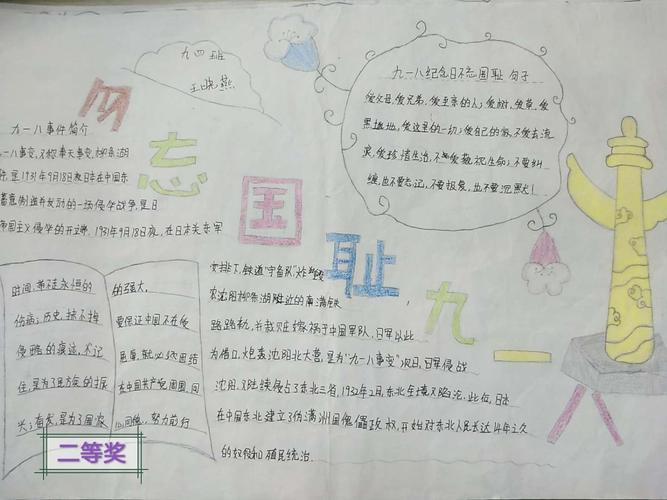 九四班
王晓燕
勿
忘
国
耻
九
一
八
九一八纪念日不忘国耻 句子
爱父母,爱兄弟,爱至亲的人;爱树,爱草,爱
黑土地,爱这里的一切;爱自己的家,不爱去流
浪,爱珍惜生活,不爱蔑视生命;不要纠
缠,也不要忘记,不要报复,也不要沉默!
九一八事件简介
八事变,又称奉天事变、柳条湖
件,是1931年9月18日日本在中国东
蓄意制造并发动的一场侵华战争,是日
帝国主义侵华的开端。1931年9月18日夜,在日本关东军
安排下,铁道"守备队"炸毁
沈阳柳条湖附近的南满铁
路路轨,并栽赃嫁祸于中国军队,日军以此
为借口,炮轰沈阳北大营,是为"九一八事变"次日,日军侵战
沈阳,又陆续侵占了东北三省,1932年2月,东北全境又陷沦.此位,日本
在中国东北建立了伪满洲国傀儡政权,开始对东北人民长达14年之久
的奴役和殖民统治.
时间,带走永恒的
伤痛;历史,抹不掉
侵略的痕迹,不记
住,是为了民族的振
兴;奋发,是为了国家
的强大,
要保证中国不在侵
辱,就必须团结
在中国共产党周围,同
心同德,努力前行
二等奖